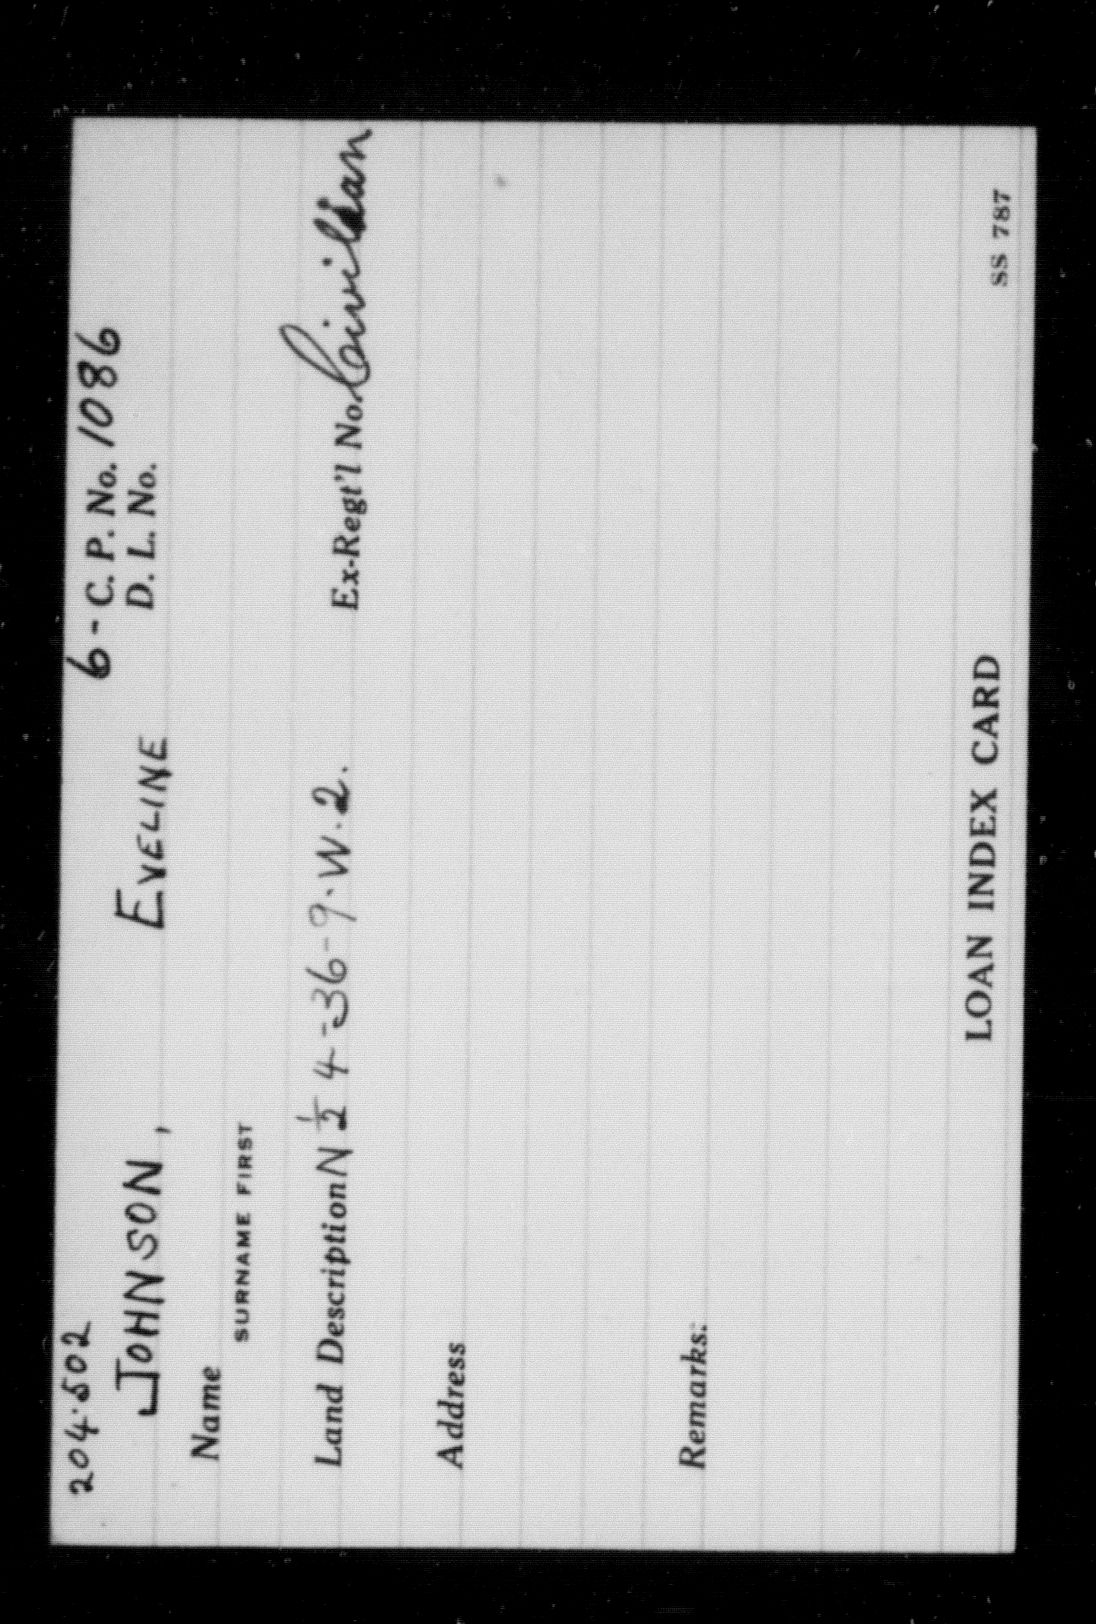 204.502
6 - C. P. No. 1086
JOHNSON, EVELINE D. L. No.
Name
SURNAME FIRST
Land Description N ½ 4-36-9. W. 2. Ex-Regt'l No. Civilian
Address
Remarks:
LOAN INDEX CARD
SS 787